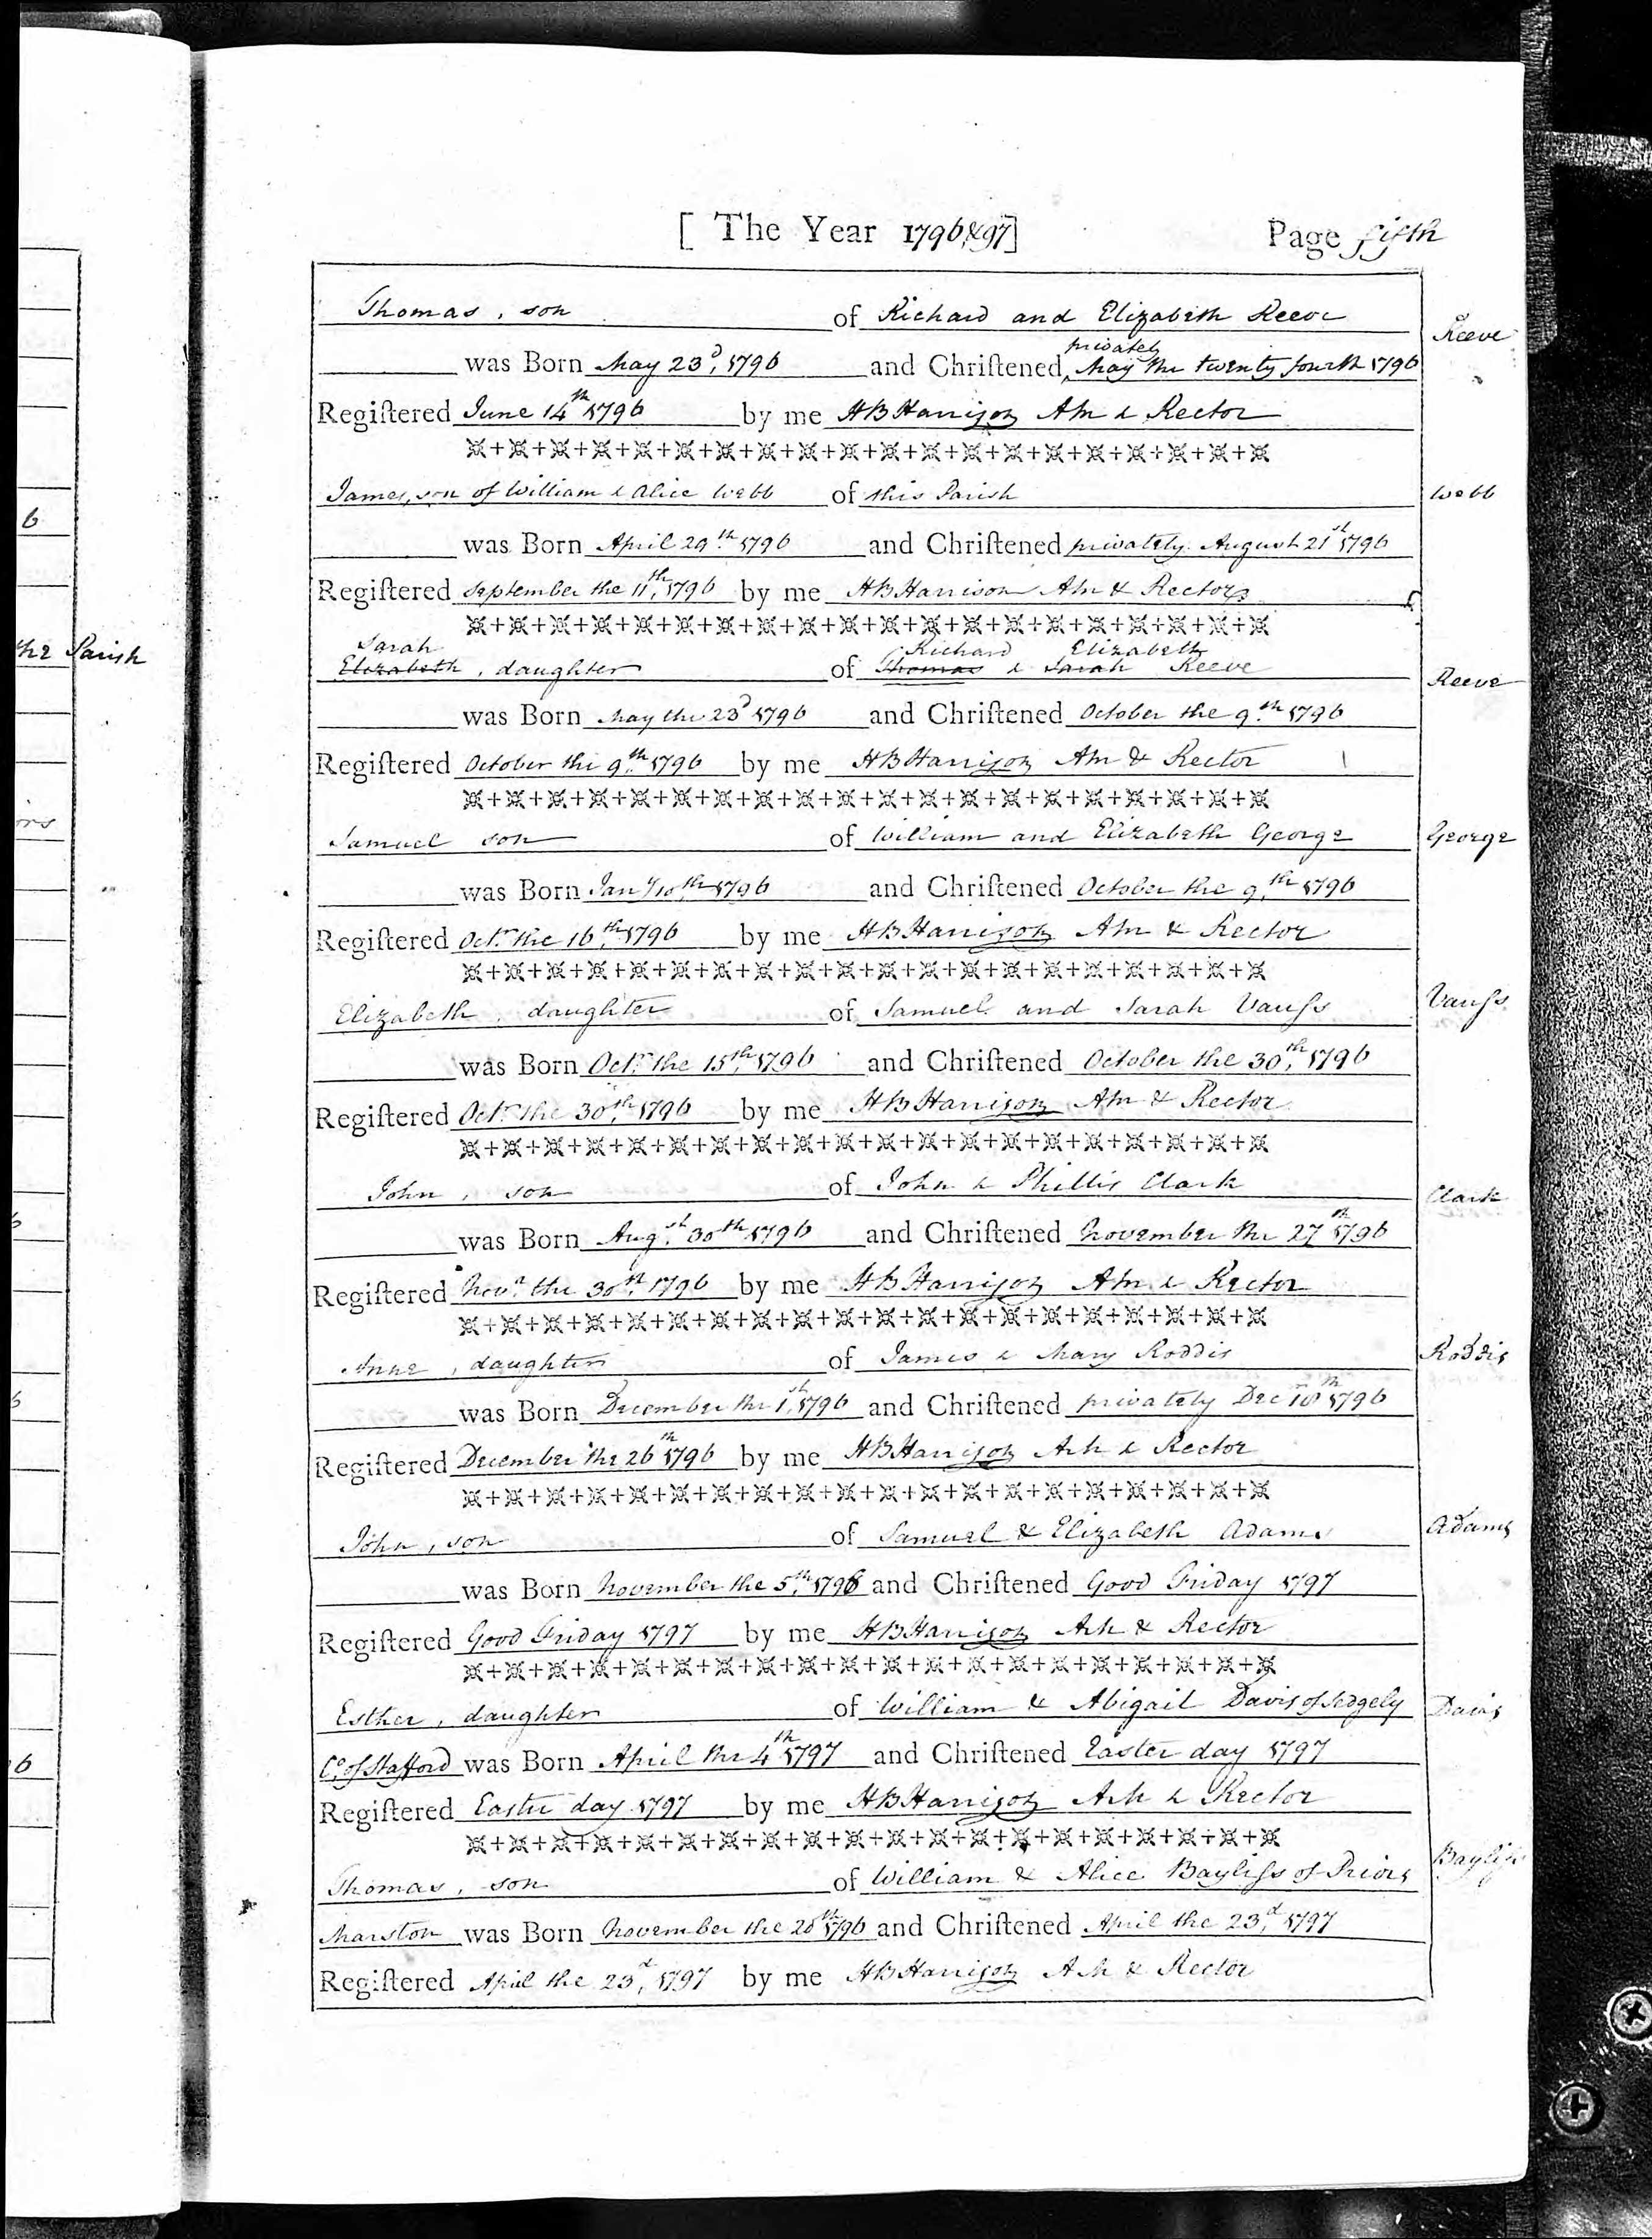 [ The Year 1796,&97]
Page fifth
Thomas, son of Richard and Elizabeth Reeve
Reeve
privately
was Born May 23d, 1796 and Chriſtened, May the twenty fourth 1796
Regiſtered June 14th 1796 by me HB Harrison AM & Rector
James, son of William & Alice Webb of this Parish
Webb
was Born April 29th 1796 and Chriſtened privately August 21st 1796
Regiſtered September the 11th, 1796 by me HB Harrison AM & Rector
Sarah Richard Elizabeth
Elizabeth, daughter of Thomas & Sarah Reeve
Reeve
was Born May the 23d 1796 and Chriſtened October the 9th 1796
Regiſtered October the 9th 1796 by me HB Harrison AM & Rector
Samuel son of William and Elizabeth George
George
was Born Jany 10th 1796 and Chriſtened October the 9th 1796
Regiſtered Octr the 16th, 1796 by me HB Harrison AM & Rector
Elizabeth, daughter of Samuel and Sarah Vauſs
Vauſs
was Born Octr the 15th, 1796 and Chriſtened October the 30th, 1796
Regiſtered Octr the 30th, 1796 by me HB Harrison AM & Rector
John, son of John & Phillis Clark
Clark
was Born Augst 30th 1796 and Chriſtened November the 27th 1796
Regiſtered Novr the 30th, 1796 by me HB Harrison AM & Rector
Anne, daughter of James & Mary Roddis
Roddis
was Born December the 1st, 1796 and Chriſtened privately Dec 18th 1796
Regiſtered December the 26th 1796 by me HB Harrison AM & Rector
John, son of Samuel & Elizabeth Adams
Adams
was Born November the 5th, 1796 and Chriſtened Good Friday 1797
Regiſtered Good Friday 1797 by me HB Harrison AM & Rector
Esther, daughter of William & Abigail Davis of Sedgely
Davis
Co. of Stafford was Born April the 4th 1797 and Chriſtened Easter day 1797
Regiſtered Easter day 1797 by me HB Harrison AM & Rector
Thomas, son of William & Alice Bayliſs of Priors
Bayliſs
Marston was Born November the 20th 1796 and Chriſtened April the 23d, 1797
Regiſtered April the 23d, 1797 by me HB Harrison AM & Rector
6
the Parish
6